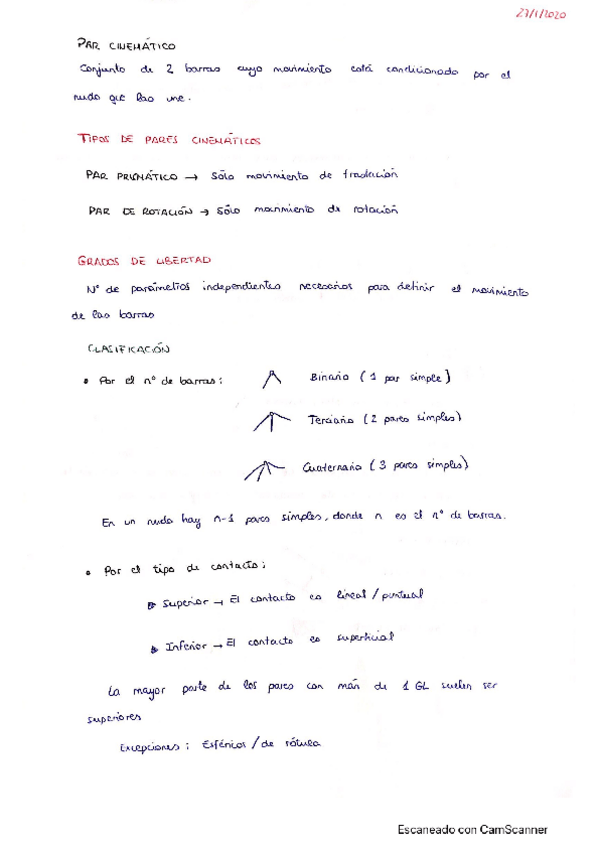 27/1/2020
PAR CINEMÁTICO
Conjunto de 2 barras cuyo movimiento está condicionado por el
nudo que las une.
TIPOS DE PARES CINEMÁTICOS
PAR PRISMÁTICO → Sólo movimiento de traslación
PAR DE ROTACIÓN → Sólo movimiento de rotación
GRADOS DE LIBERTAD
Nº de parámetros independientes necesarios para definir el movimiento
de las barras
CLASIFICACIÓN
• Por el nº de barras: Binario (1 par simple)
Terciario (2 pares simples)
Cuaternario (3 pares simples)
En un nudo hay n-1 pares simples, donde n es el nº de barras.
• Por el tipo de contacto:
Superior → El contacto es lineal / puntual
Inferior → El contacto es superficial
La mayor parte de los pares con más de 1 GL suelen ser
superiores
Excepciones: Esféricos / de rótula
Escaneado con CamScanner